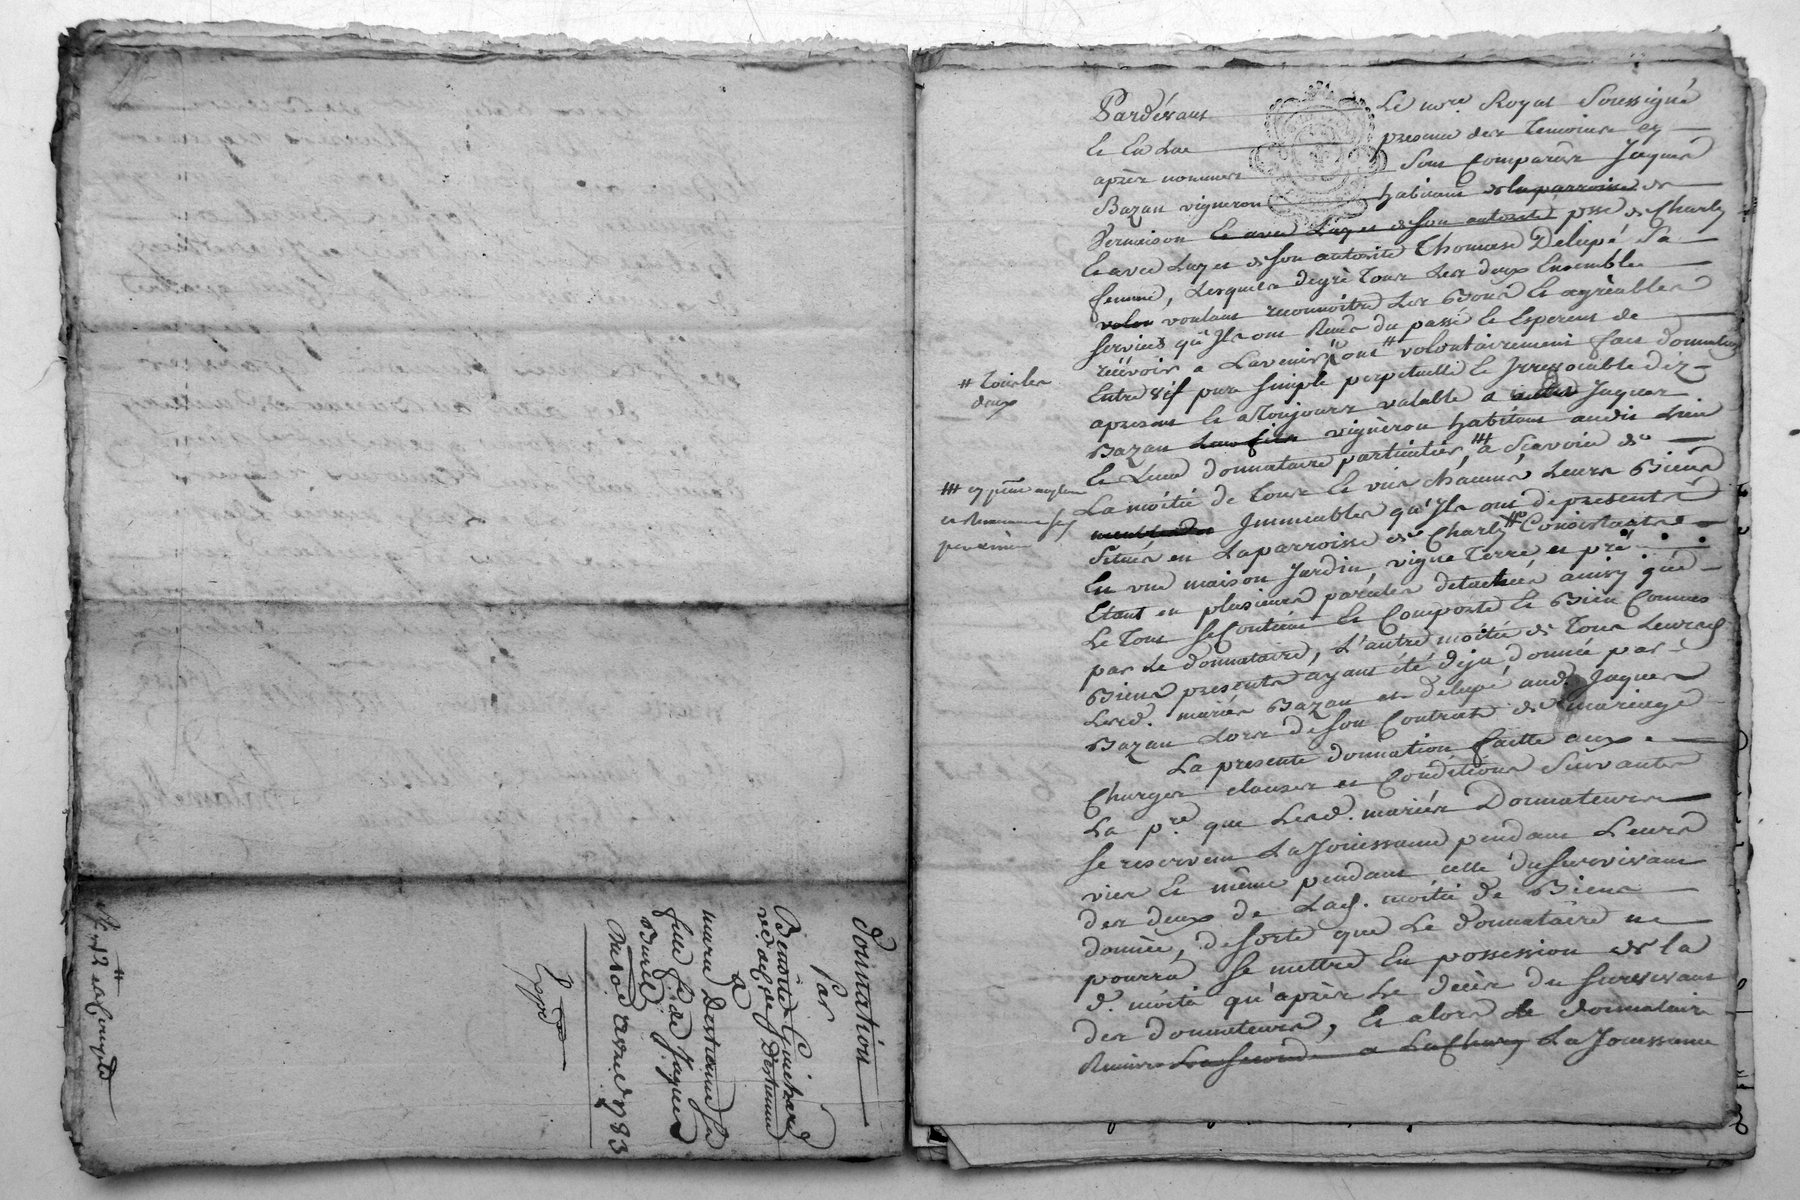 donnation
par
Benoite Guichard
ve. de Cl. Destienne
a
marie Destienne sa
fille f. de Jaques
Burlet
du 20e avril 1783
Expéd
Pardevant Le nore. Royal Soussigné
Et En La presence des Temoins cy
après nommes Sont Comparûs Jaques
Bazan vigneron habitant de la parroisse de
Vernaison Et avec Luy et de son autorité psse. de Charly
Et avec Luy et de son autorité Thomase Delupé Sa
femme, Lesquels degré Tous Les deux Ensemble
volon voulant reconnoitre Les Bons Et agréables
services qu'Ils ont Reçus du passé Et Esperent de
recevoir a L'avenir, ont # volontairement fait donnation
Entre vif pure simple perpetuelle Et Irrevocable dez
apresent Et a Toujours valable a Jaques
Bazan Leur fils vigneron habitant audit Lieu
Et Leur donnataire particulier, ## a Scavoir de
La moitié de Tous Et un chacuns, Leurs Biens
meubles Immeubles qu'Ils ont de presents
Situés en La parroisse de Charly Consistants
En une maison Jardin, vigne Terre et pré
Etant en plusieurs parcules detachées ainsy que
Le Tout se Contient Et Comporte Et Bien Connus
par Le donnataire, L'autre moitié de Tous Leursd.
Biens presents ayant été deja donnée par
Lesd. mariés Bazan et Delupé aud. Jaques
Bazan Lors de son Contrat de mariage
La presente donnation faitte aux
Charges clauses et Conditions Suivantes
La pre. que Lesd. mariés Donnateurs
Se reservent La Jouissance pendant Leurs
vies Et même pendant celle du Survivant
des deux de Lad. moitié de Biens
donnée, de sorte que Le donnataire ne
pourra Se mettre En possession de la
d. moitié qu'après Le decès du Survivant
des donnateurs, Et alors Le donnataire
Reunira La Seconde a La Charge La Jouissance
# Tous les
deux